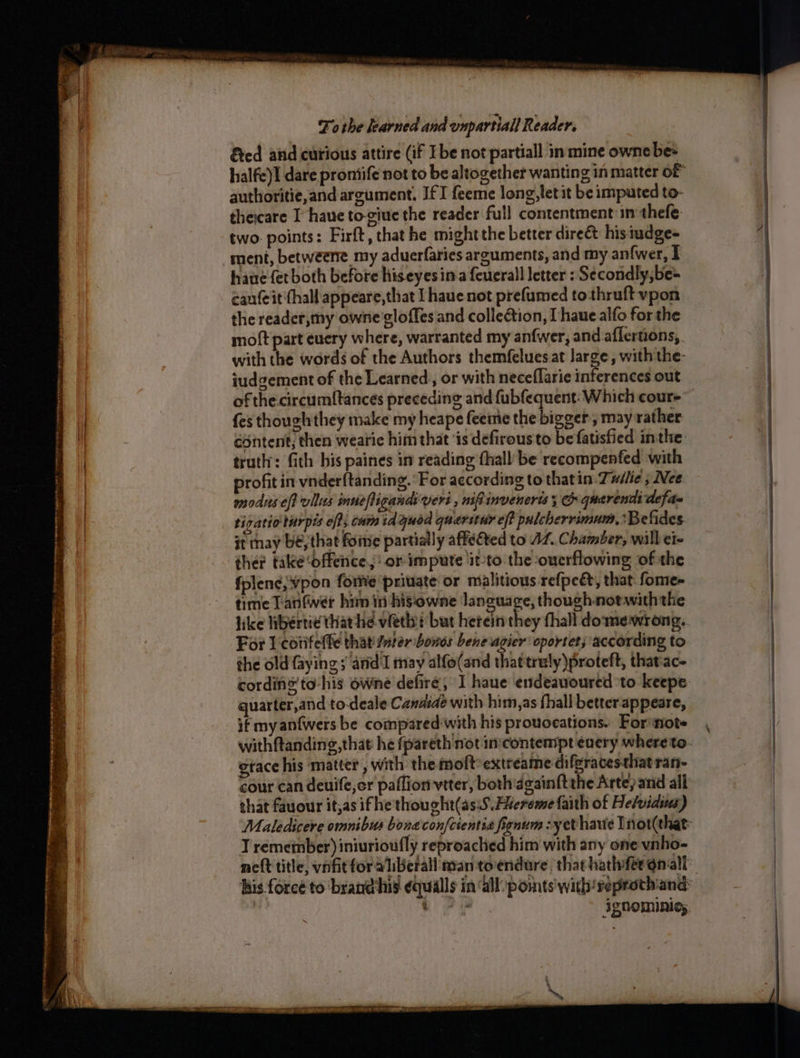 To the learned and vnpartiall Reader.
cted and curious attire (if I be not partiall in mine owne be-
halfe) I dare promise not to be altogether wanting in matter of
authoritie, and argument. If I seeme long, let it be imputed to
the care I haue to giue the reader full contentment in these
two points: First, that he might the better direct his iudge-
ment, betweene my aduersaries arguments, and my answer, I
haue set both before his eyes in a seuerall letter: Secondly, be-
cause it shall appeare, that I haue not presumed to thrust vpon
the reader, my owne glosses and collection, I haue also for the
most part euery where, warranted my answer, and assertions,
with the words of the Authors themselues at large, with the
iudgement of the Learned, or with necessarie inferences out
of the circumstances preceding and subsequent: Which cour-
ses though they make my heape seeme the bigger, may rather
content, then wearie him that is desirous to be satisfied in the
truth: sith his paines in reading shall be recompensed with
profit in vnderstanding. For according to that in Tullie, Nec
modus est vllus inuestigandi veri, nisi inveneris; & quærendi defa-
tigatio turpis est, cum id quod quæritur est pulcherrimum. Besides
it may be, that some partially affected to M. Chamber, will ei-
ther take offence, or impute it to the ouerflowing of the
splene, vpon some priuate or malitious respect, that some-
time I answer him in his owne language, though not with the
like libertie that he vseth: but herein they shall do me wrong.
For I confesse that Inter bonos bene agier oportet, according to
the old saying; and I may also (and that truly) protest, that ac-
cording to his owne desire, I haue endeauoured to keepe
quarter, and to deale Candidè with him, as shall better appeare,
if my answers be compared with his prouocations. For note
withstanding, that he spareth not in contempt euery where to
grace his matter, with the most extreame disgraces that ran-
cour can deuise, or passion vtter, both against the Arte, and all
that fauour it, as if he thought (as S. Hierome saith of Heluidius)
Maledicere omnibus bonæ conscientiæ signum: yet haue I not (that
I remember) iniuriously reproached him with any one vnho-
nest title, vnfit for a liberall man to endure, that hath set on all
his force to brand his equalls in all points with reproth and
ignominie,